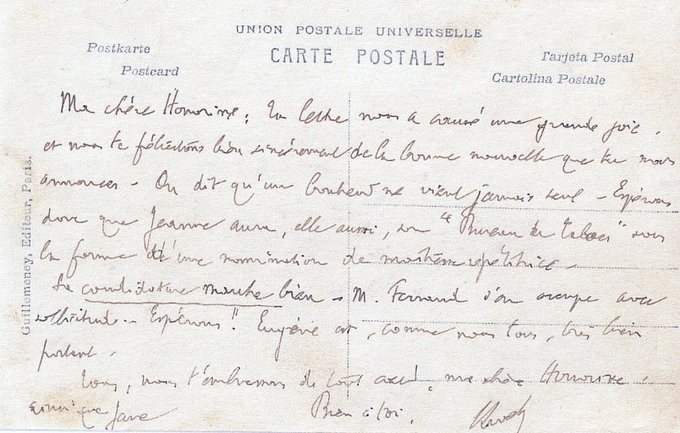 UNION POSTALE UNIVERSELLE
CARTE POSTALE
Postkarte
Postcard
Tarjeta Postal
Cartolina Postale
Guillomency, Editeur, Paris.
Ma chère Honorine, Ta lettre nous a causé une grande joie.
et nous te félicitons bien sincèrement de la bonne nouvelle que tu nous
annonces – On dit qu'un bonheur ne vient jamais seul – Espérons
donc que Jeanne aura, elle aussi, son "Bureau de tabac" sous
la forme d'une nomination de maîtresse répétitrice –
Sa candidature marche bien – M. Fernand s'en occupe avec
sollicitude – Espérons !! Eugène est, comme nous tous, très bien
portant.
Tous, nous t'embrassons de tout cœur, ma chère Honorine.
ainsi que Jane
Bien à toi.